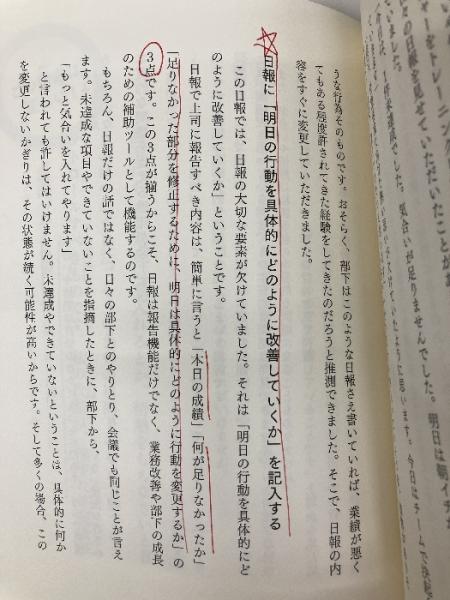 うな行為そのものです。おそらく、部下はこのような日報さえ書いていれば、業績が悪く
てもある程度許されてきた経験をしてきたのだろうと推測できました。そこで、日報の内
容をすぐに変更していただきました。
日報に「明日の行動を具体的にどのように改善していくか」を記入する
この日報では、日報の大切な要素が欠けていました。それは「明日の行動を具体的にど
のように改善していくか」ということです。
日報で上司に報告すべき内容は、簡単に言うと「本日の成績」「何が足りなかったか」
「足りなかった部分を修正するために、明日は具体的にどのように行動を変更するか」の
3点です。この3点が揃うからこそ、日報は報告機能だけでなく、業務改善や部下の成長
のための補助ツールとして機能するのです。
もちろん、日報だけの話ではなく、日々の部下とのやりとり、会議でも同じことが言え
ます。未達成な項目やできていないことを指摘したときに、部下から、
「もっと気合いを入れてやります」
と言われても許してはいけません。未達成やできていないということは、具体的に何か
を変更しないかぎりは、その状態が続く可能性が高いからです。そして多くの場合、この